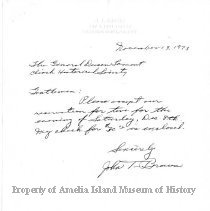 November 19, 1973
The General Duncan Lamont
Clinch Historical Society
Gentlemen:
Please accept our
reservation for two for the
evening of Saturday, Dec 8th
My check for $20 is enclosed.
Sincerely
John T. Brown
Property of Amelia Island Museum of History